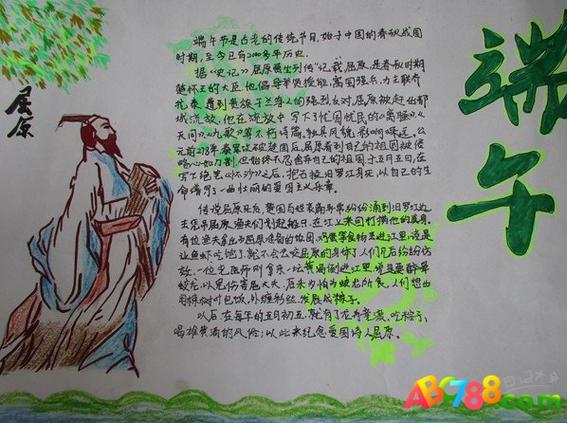 端午
屈原
端午节是古老的传统节日,始于中国的春秋战国
时期,至今已有2000多年历史。
据《史记》屈原贾生列传"记载,屈原,是春秋时期
楚怀王的大臣,他倡导举贤授能,富国强兵,力主联齐
抗秦,遭到贵族子兰等人的强烈反对,屈原被赶出都
城,流放,他在流放中,写下了忧国忧民的《离骚》《
天问》、《九歌》等不朽诗篇,独具风貌,影响深远。公
元前278年,秦军攻破楚国后,屈原看到自己的祖国被侵
略,心如刀割,但始终不忍舍弃自己的祖国,于五月五日,在
写下绝笔《怀沙》之后,抱石投汨罗江身死,以自己的生
命谱写了一曲壮丽的爱国主义乐章。
传说屈原死后,楚国百姓哀痛异常,纷纷涌到汨罗江边
去凭吊屈原,渔夫们划起船只,在江上来回打捞他的真身。
有位渔夫拿出为屈原准备的饭团、鸡蛋等食物丢进江里,说是
让鱼虾吃饱了,就不会去咬屈原的身体了,人们见后纷纷仿
效。一位老医师则拿来一坛黄酒倒进江里,说是要醉晕
蛟龙,以免伤害屈大夫,后来为怕为蛟龙所食,人们想出
用楝树叶包饭,外缠彩丝,发展成粽子。
以后,在每年的五月初五,就有了龙舟竞渡、吃粽子、
喝雄黄酒的风俗;以此来纪念爱国诗人屈原。
ABC788.com